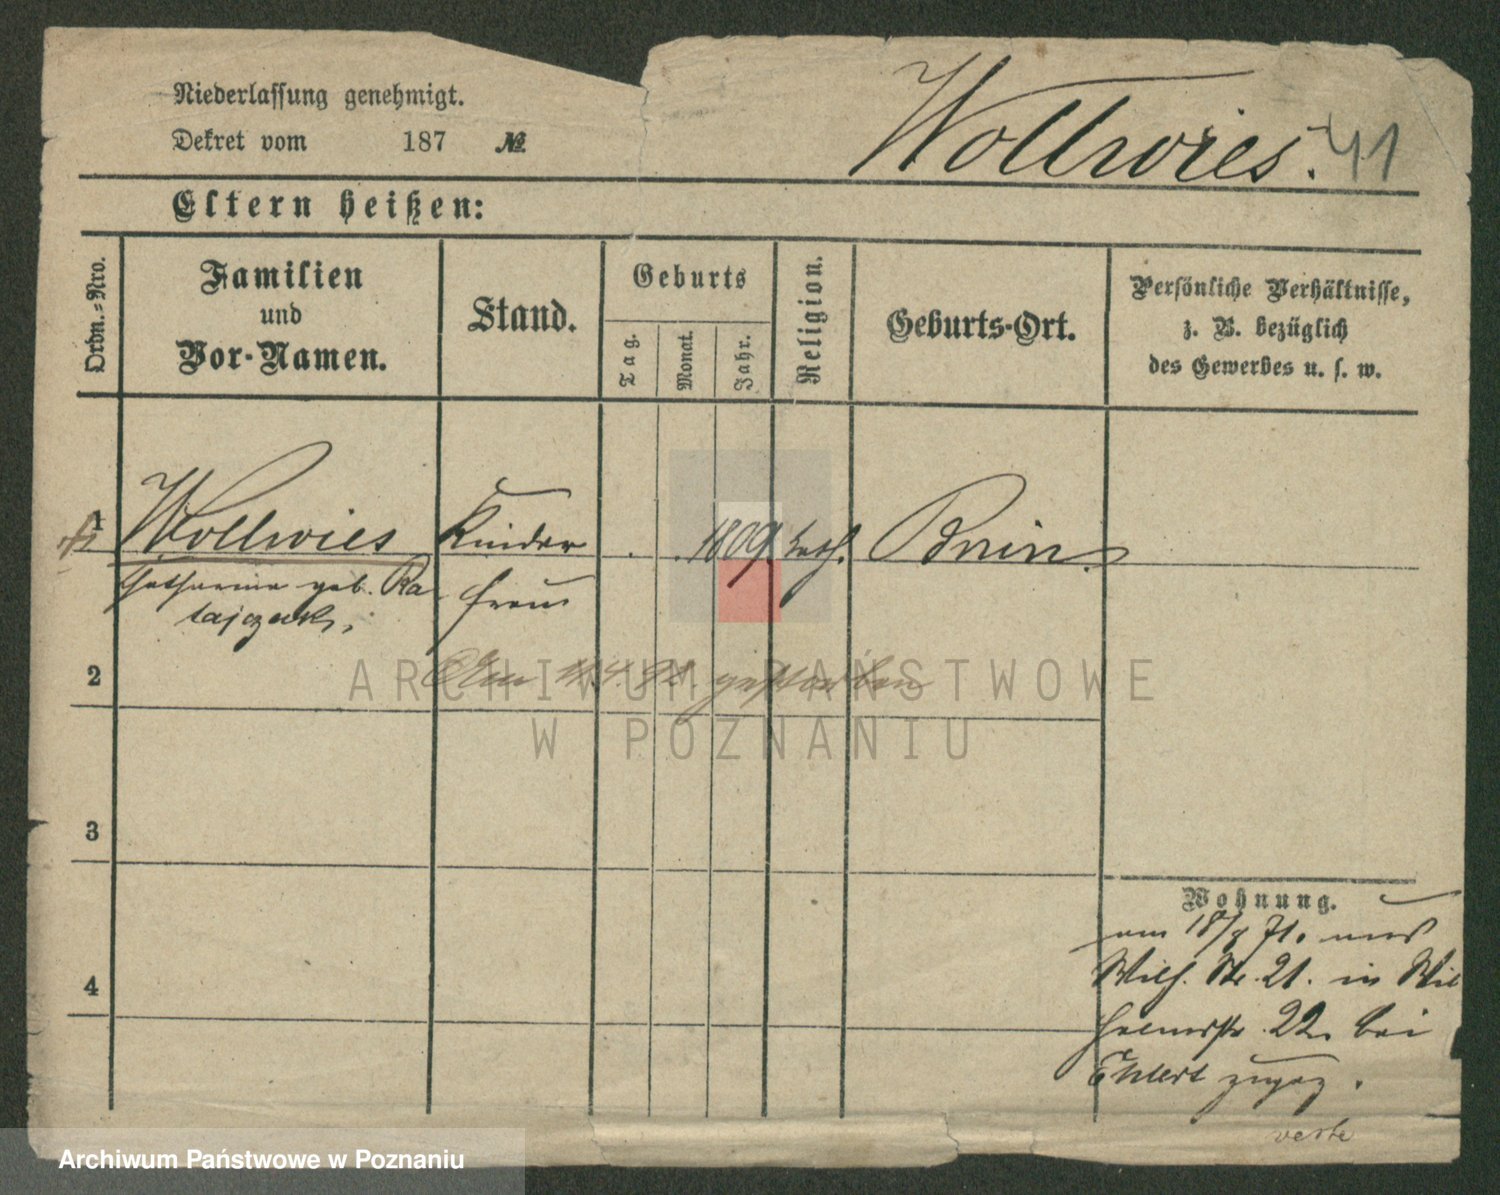 Niederlassung genehmigt.
Dekret vom 187 №
Wollwies. 41
Eltern heißen:
Ordn.-Nro.
Familien
und
Vor-Namen.
Stand.
Geburts
Tag.
Monat.
Jahr.
Religion.
Geburts-Ort.
Persönliche Verhältnisse,
z. B. bezüglich
des Gewerbes u. s. w.
1 Wollwies Kinder 1809. kath. Bnin.
Catharina geb. Ra
tajczak, frau
2 Am 11.4.92. gestorben
3
4
Wohnung.
am 18/9 71. aus
Wilh. Str. 21. in Wil
helmstr. 22. bei
Ehlert zugez.
ARCHIWUM PAŃSTWOWE
W POZNANIU
Archiwum Państwowe w Poznaniu